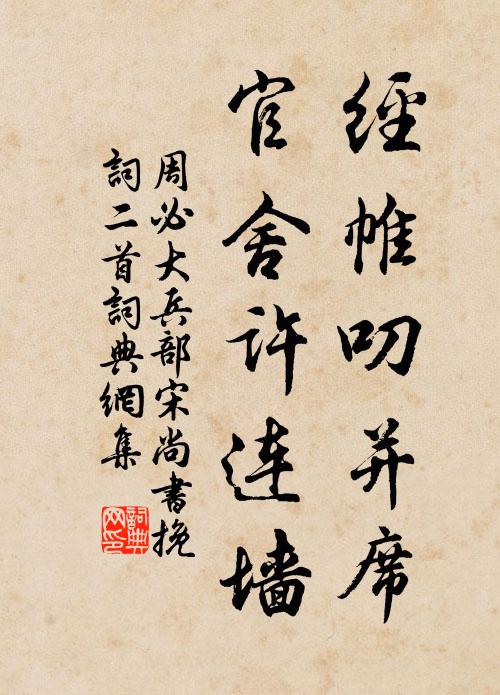 經帷叨并席
官舍许连墙
周必大兵部宋尚書挽
詞二首詞典網集
詞典网印